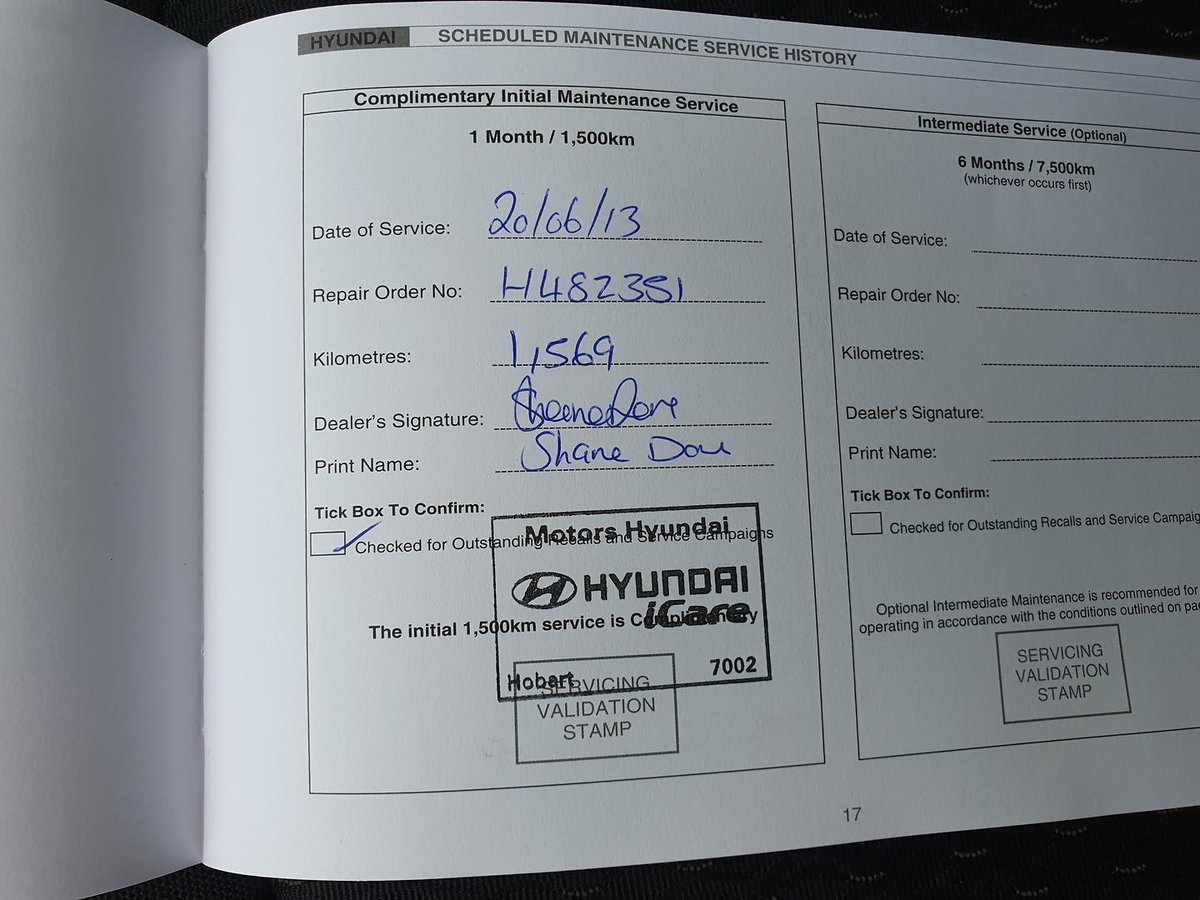 HYUNDAI SCHEDULED MAINTENANCE SERVICE HISTORY
Complimentary Initial Maintenance Service
1 Month / 1,500km
Date of Service: 20/06/13
Repair Order No: H482351
Kilometres: 1,569
Dealer's Signature:
Print Name: Shane Dow
Tick Box To Confirm:
Checked for Outstanding Recalls and Service Campaigns
Motors Hyundai
HYUNDAI
iCare
The initial 1,500km service is Complimentary
Hobart 7002
SERVICING
VALIDATION
STAMP
Intermediate Service (Optional)
6 Months / 7,500km
(whichever occurs first)
Date of Service:
Repair Order No:
Kilometres:
Dealer's Signature:
Print Name:
Tick Box To Confirm:
Checked for Outstanding Recalls and Service Campaig
Optional Intermediate Maintenance is recommended for
operating in accordance with the conditions outlined on pa
SERVICING
VALIDATION
STAMP
17